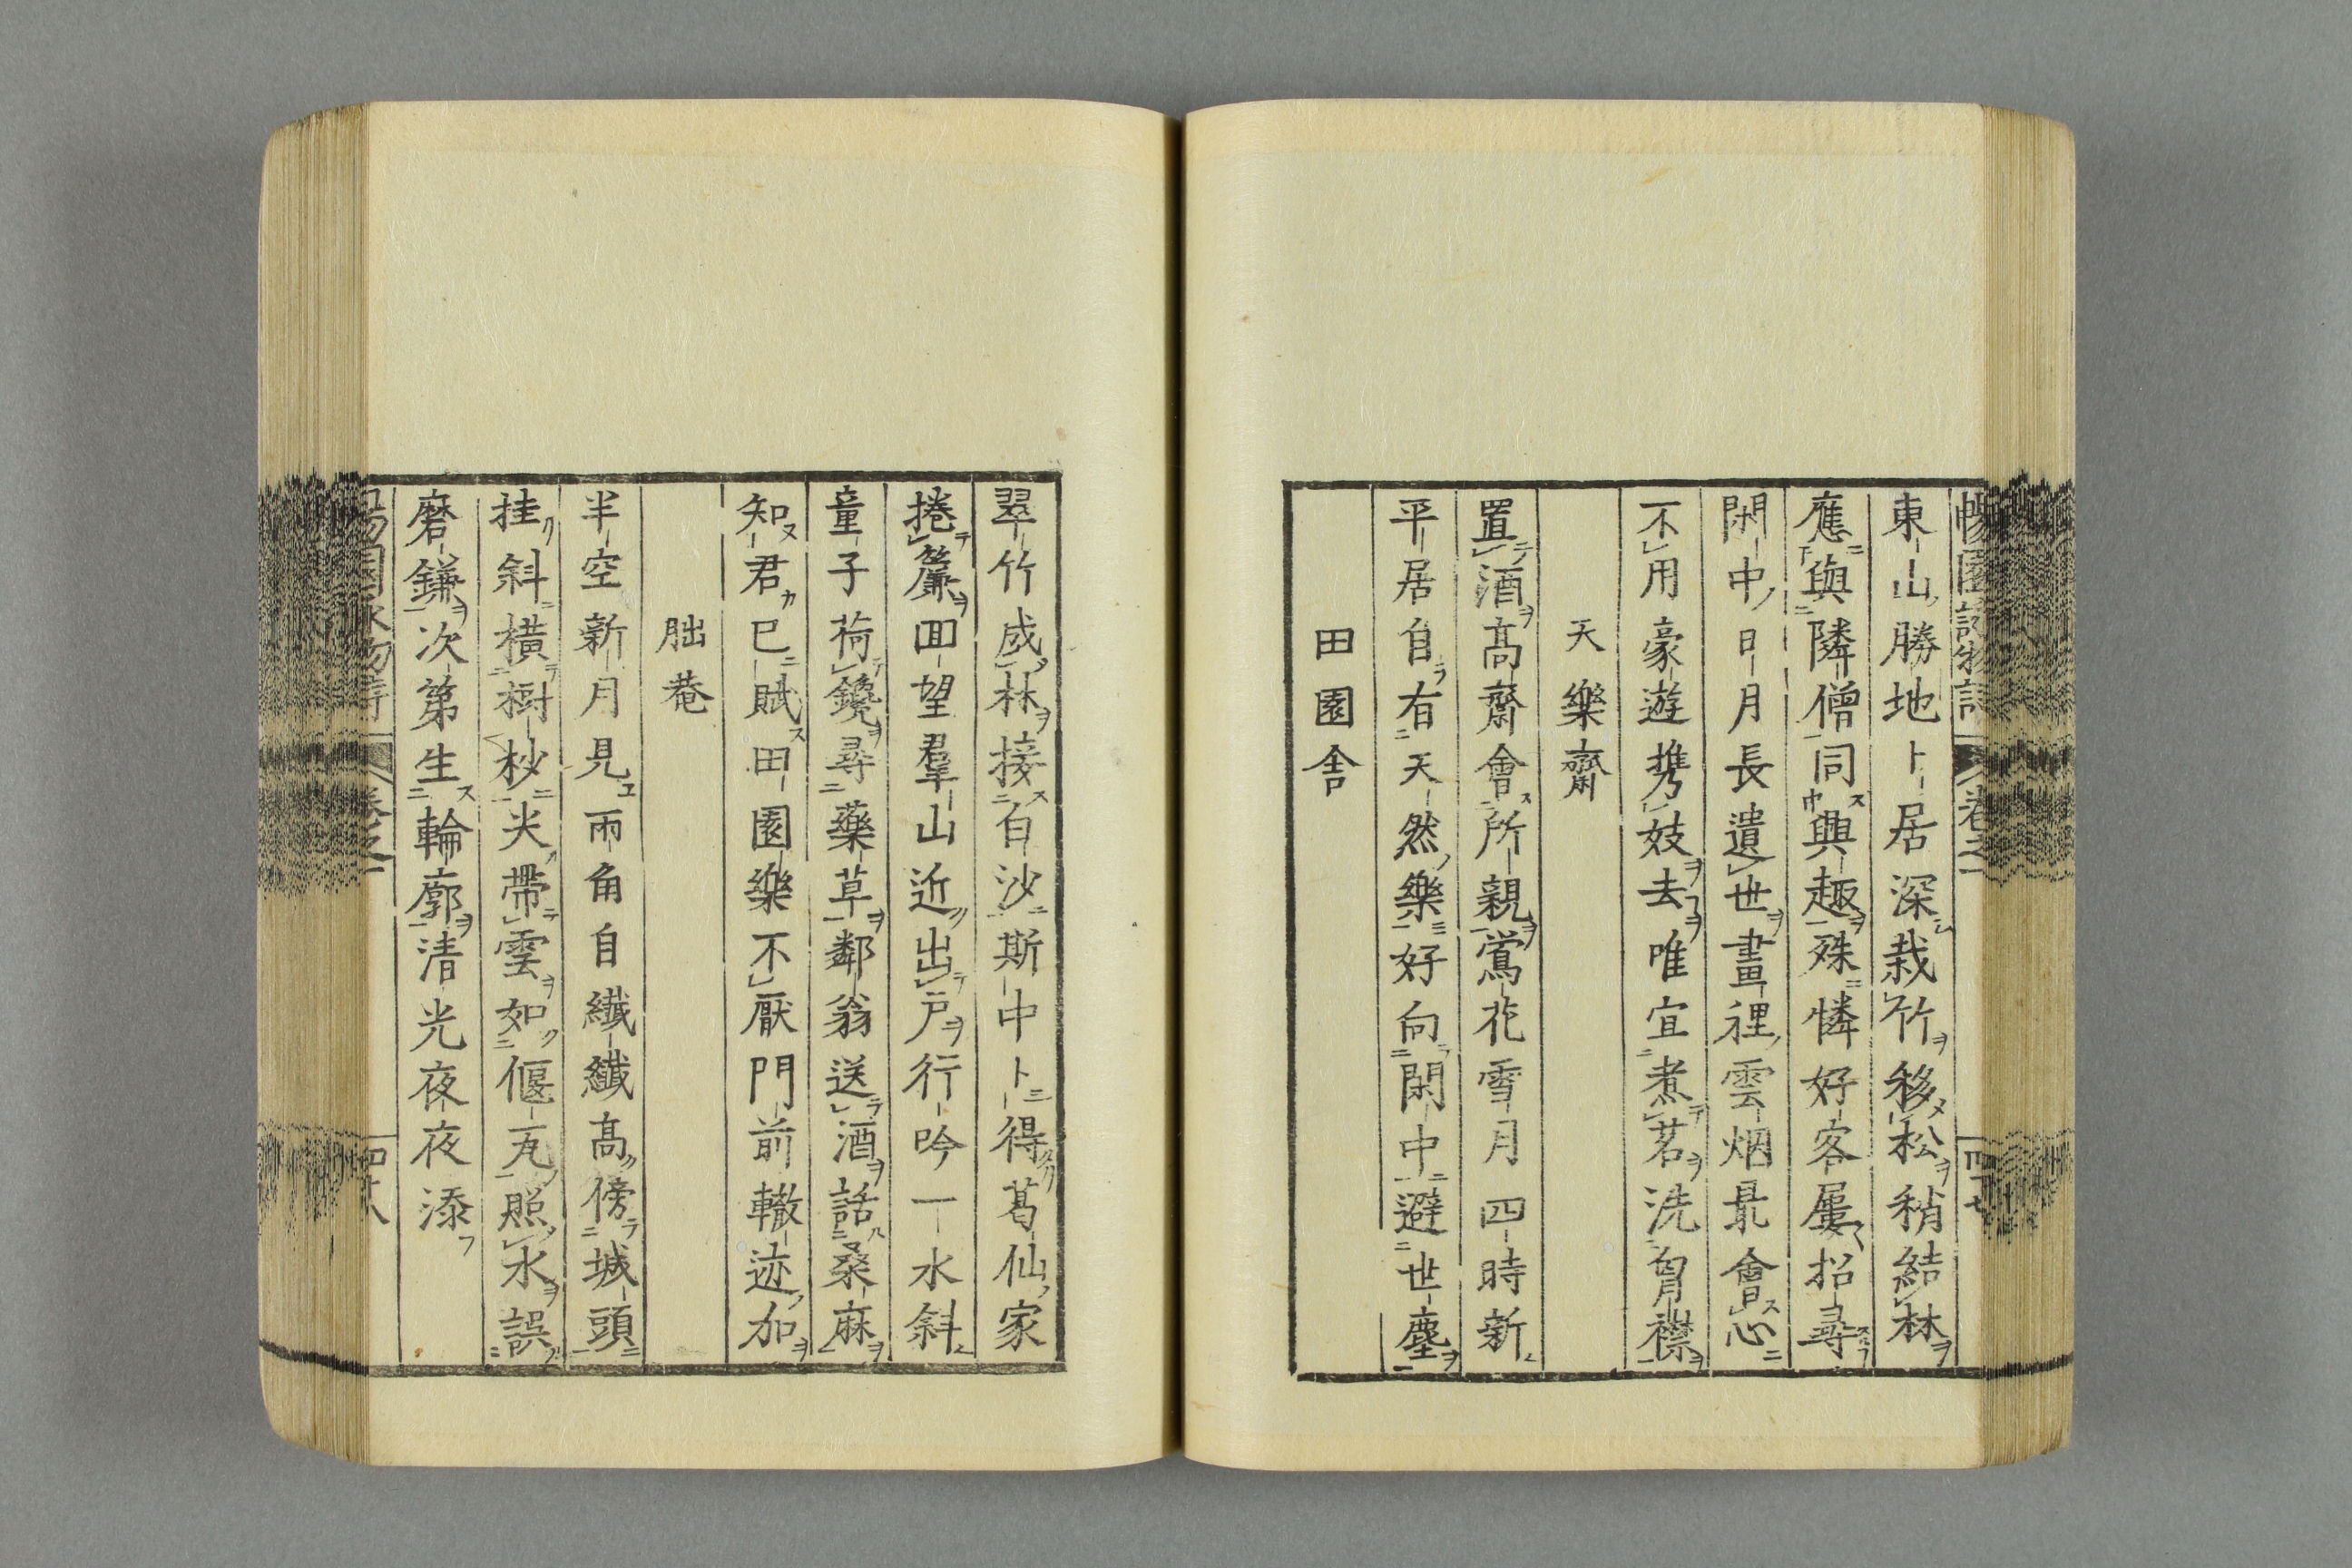 東山勝地卜居深栽竹移松稍結林
應與隣僧同興趣殊憐好客屢招尋
閑中日月長遺世畫裡雲烟最會心
不用豪遊携妓去唯宜煮茗洗胷襟
天樂齋
置酒高齋會所親鶯花雪月四時新
平居自有天然樂好向閑中避世塵
田園舎
翠竹成林接白沙斯中卜得葛仙家
捲簾回望羣山近出戸行吟一水斜
童子荷鑱尋藥草鄰翁送酒話桑麻
知君已賦田園樂不厭門前轍迹加
朏菴
半空新月見兩角自纖纖高傍城頭
挂斜横樹杪尖帶雲如偃瓦照水誤
磨鎌次第生輪廓清光夜夜添